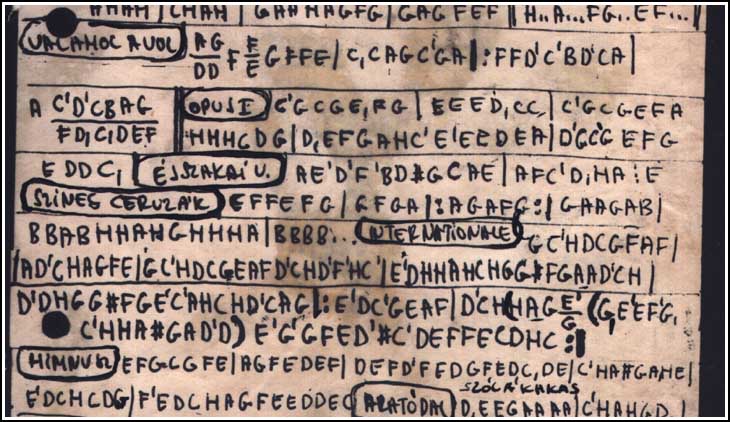 AHAH | CHAH | GAAHAGFG | GAG FEF || H..A...FG..EF...
VALAHOL A VOL AG/DD F F/E G#FE | C,CAGC'GA |: FFD'C'BD'CA |
A C'D'CBAG/FD,C,DEF OPUS I C'GCGE,FG | EEED,CC, | C'GCGEFA
HHHCDG | D,EFGAHC'E'EEDEA | D'GC'G EFG
EDDC, ÉJSZAKAI U. AE'D'F'BD#GCAE | AFC'D,HA:E
SZINES CERUZÁK EFFEFG | GFGA |: AGAFG :| GAAGAB |
BBABHHAHGHHHA | BBBB... INTERNATIONALE GC'HDCGFAF |
| AD'CHAGFE | GC'HDCGEAFD'CHD'F'HC' | E'DHHAHCHGG#FGAAD'CH |
D'D'HGG#FGE'C'AHCHD'CAG |: E'DC'GEAF | D'CH(HAG E'/G (G,E'EF'G,
C'HHA#GAD'D) E'G'G'FED'#C'DEFFECDHC :|
HIMNUSZ EFGCGFE | AGFEDEF | DEFD'FEDGFEDC,DE | C'HA#GAHE |
E'DCHCDG | F'EDCHAGFEEDDEC ALTATÓDAL SZÓL A KAKAS D,EEGAAAA | C'HAHGD |